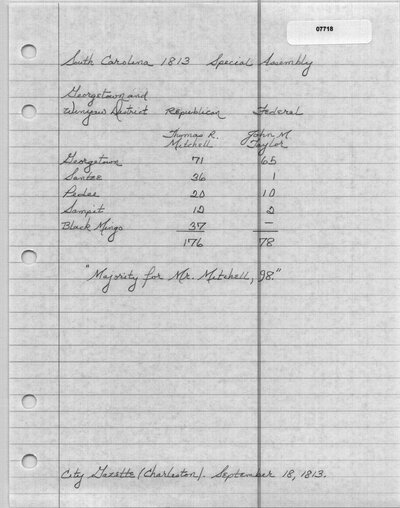 07718
South Carolina 1813 Special Assembly
Georgetown and
Winyaw District Republican Federal
Thomas R. John M.
Mitchell Taylor
Georgetown 71 65
Santee 36 1
Pedee 20 10
Sampit 12 2
Black Mingo 37 —
176 78
"Majority for Mr. Mitchell, 98."
City Gazette (Charleston). September 18, 1813.